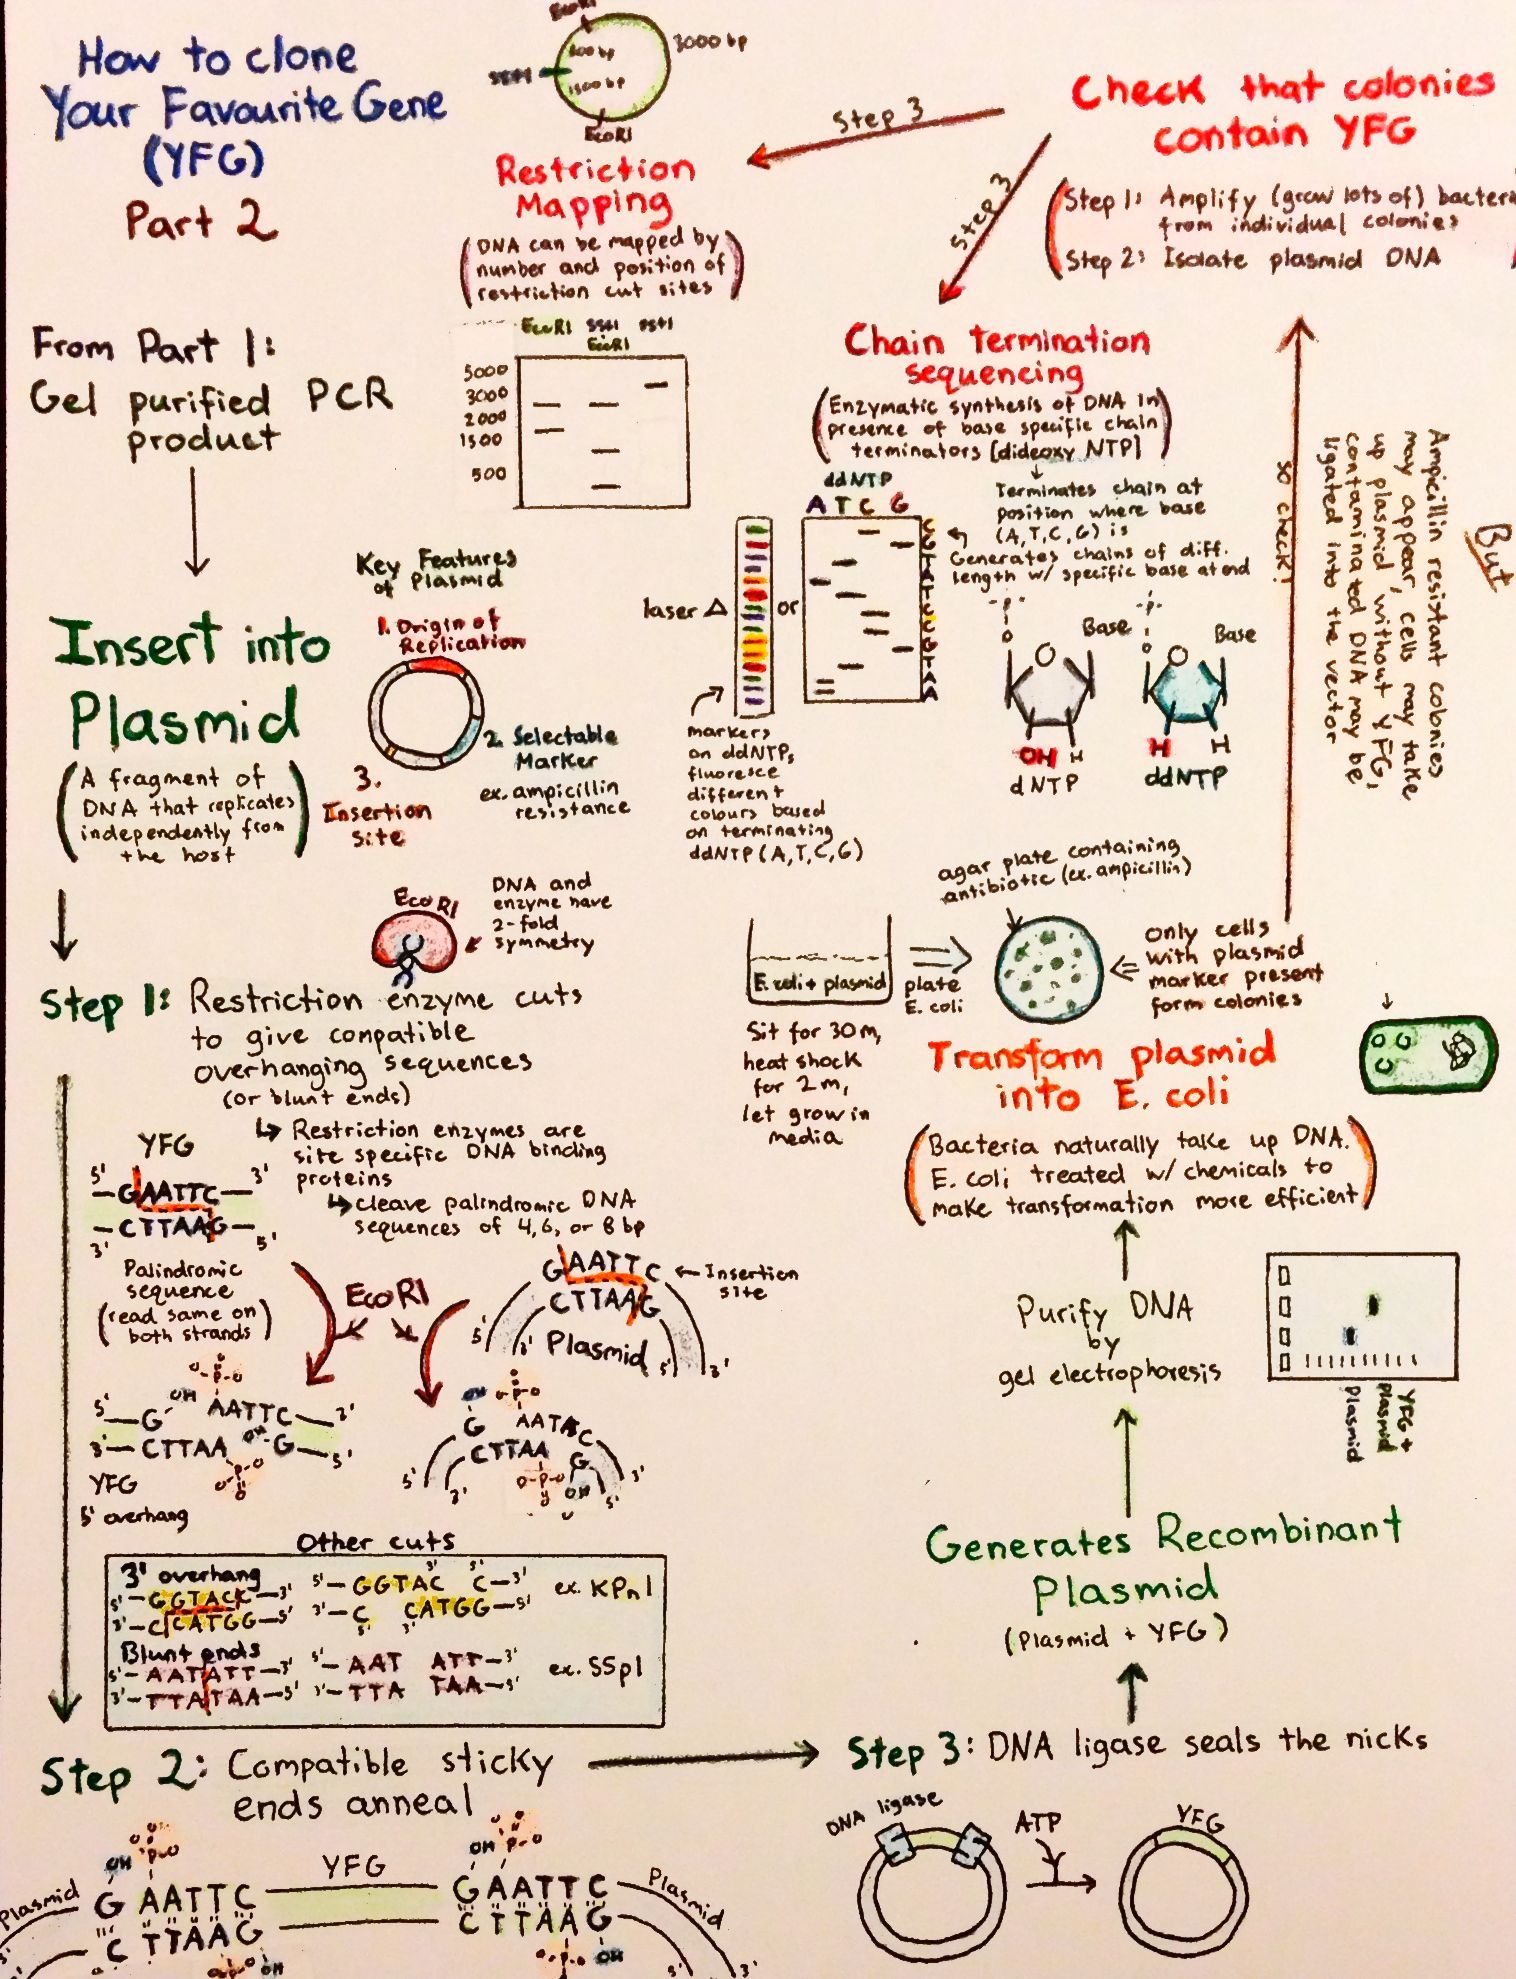 How to clone
Your Favourite Gene
(YFG)
Part 2
From Part 1:
Gel purified PCR
product
Insert into
Plasmid
(A fragment of
DNA that replicates
independently from
the host)
Key Features
of Plasmid
1. Origin of
Replication
2. Selectable
Marker
ex. ampicillin
resistance
3.
Insertion
site
EcoRI
DNA and
enzyme have
2-fold
symmetry
Step 1: Restriction enzyme cuts
to give compatible
overhanging sequences
(or blunt ends)
↳ Restriction enzymes are
site specific DNA binding
proteins
↳ cleave palindromic DNA
sequences of 4, 6, or 8 bp
YFG
5' —GAATTC— 3'
3' —CTTAAG— 5'
Palindromic
sequence
(read same on
both strands)
EcoRI
GAATTC ← Insertion
site
CTTAAG
5' 3' Plasmid 5' 3'
5' —G OH AATTC— 3'
3' —CTTAA OH G— 5'
YFG
5' overhang
OH
G
CTTAA
G
OH
5' 3' 5' 3'
Other cuts
3' overhang
5'—GGTACC—3' 5'—GGTAC C—3' ex. KPnI
3'—CCATGG—5' 3'—C CATGG—5'
Blunt ends
5'—AATATT—3' 5'—AAT ATT—3' ex. SSpI
3'—TTATAA—5' 3'—TTA TAA—5'
Step 2: Compatible sticky
ends anneal
Plasmid
OH
GAATTC YFG GAATTC Plasmid
CTTAAG CTTAAG
OH
5' 3'
Step 3: DNA ligase seals the nicks
DNA ligase
ATP
YFG
Generates Recombinant
Plasmid
(Plasmid + YFG)
Purify DNA
by
gel electrophoresis
Plasmid
YFG +
Plasmid
Transform plasmid
into E. coli
(Bacteria naturally take up DNA.
E. coli treated w/ chemicals to
make transformation more efficient)
E. coli + plasmid
Sit for 30 m,
heat shock
for 2 m,
let grow in
media
plate
E. coli
agar plate containing
antibiotic (ex. ampicillin)
only cells
with plasmid
marker present
form colonies
But
Ampicillin resistant colonies
may appear, cells may take
up plasmid without YFG,
contaminated DNA may be
ligated into the vector
so check!
Check that colonies
contain YFG
(Step 1: Amplify (grow lots of) bacteri
from individual colonies
Step 2: Isolate plasmid DNA
Step 3
Step 3
EcoRI
3000 bp
1500 bp
EcoRI
Restriction
Mapping
(DNA can be mapped by
number and position of
restriction cut sites)
EcoRI
EcoRI
5000
3000
2000
1500
500
Chain termination
sequencing
(Enzymatic synthesis of DNA in
presence of base specific chain
terminators [dideoxy NTP])
Terminates chain at
position where base
(A, T, C, G) is
Generates chains of diff.
length w/ specific base at end
ddNTP
A T C G
laser
or
markers
on ddNTPs
fluoresce
different
colours based
on terminating
ddNTP (A, T, C, G)
Base
O
OH H
dNTP
Base
O
H H
ddNTP